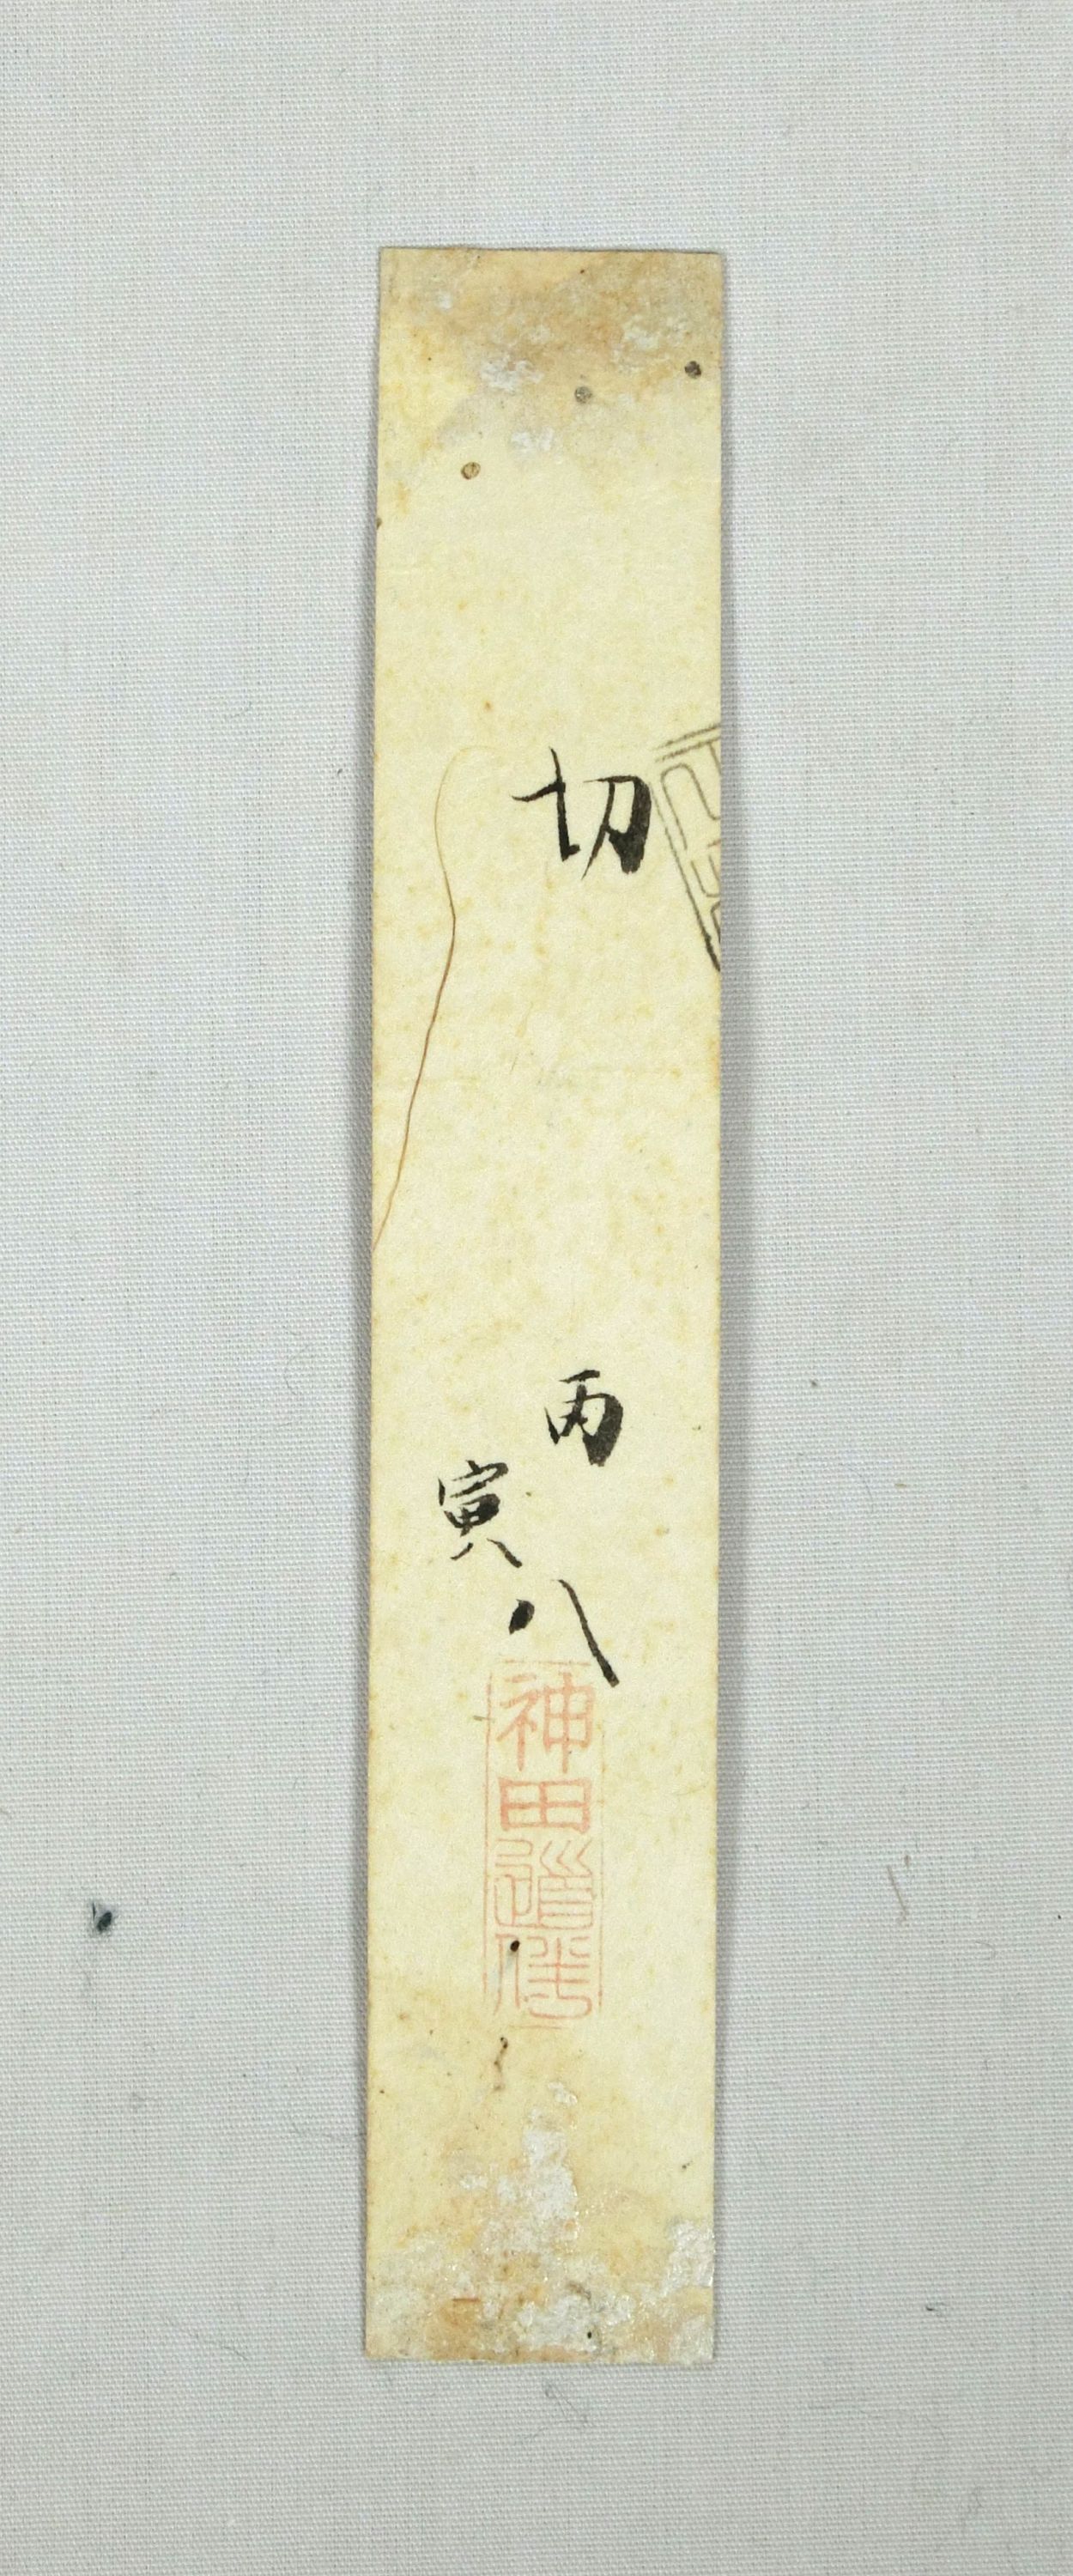 切
丙寅八
神田道伴